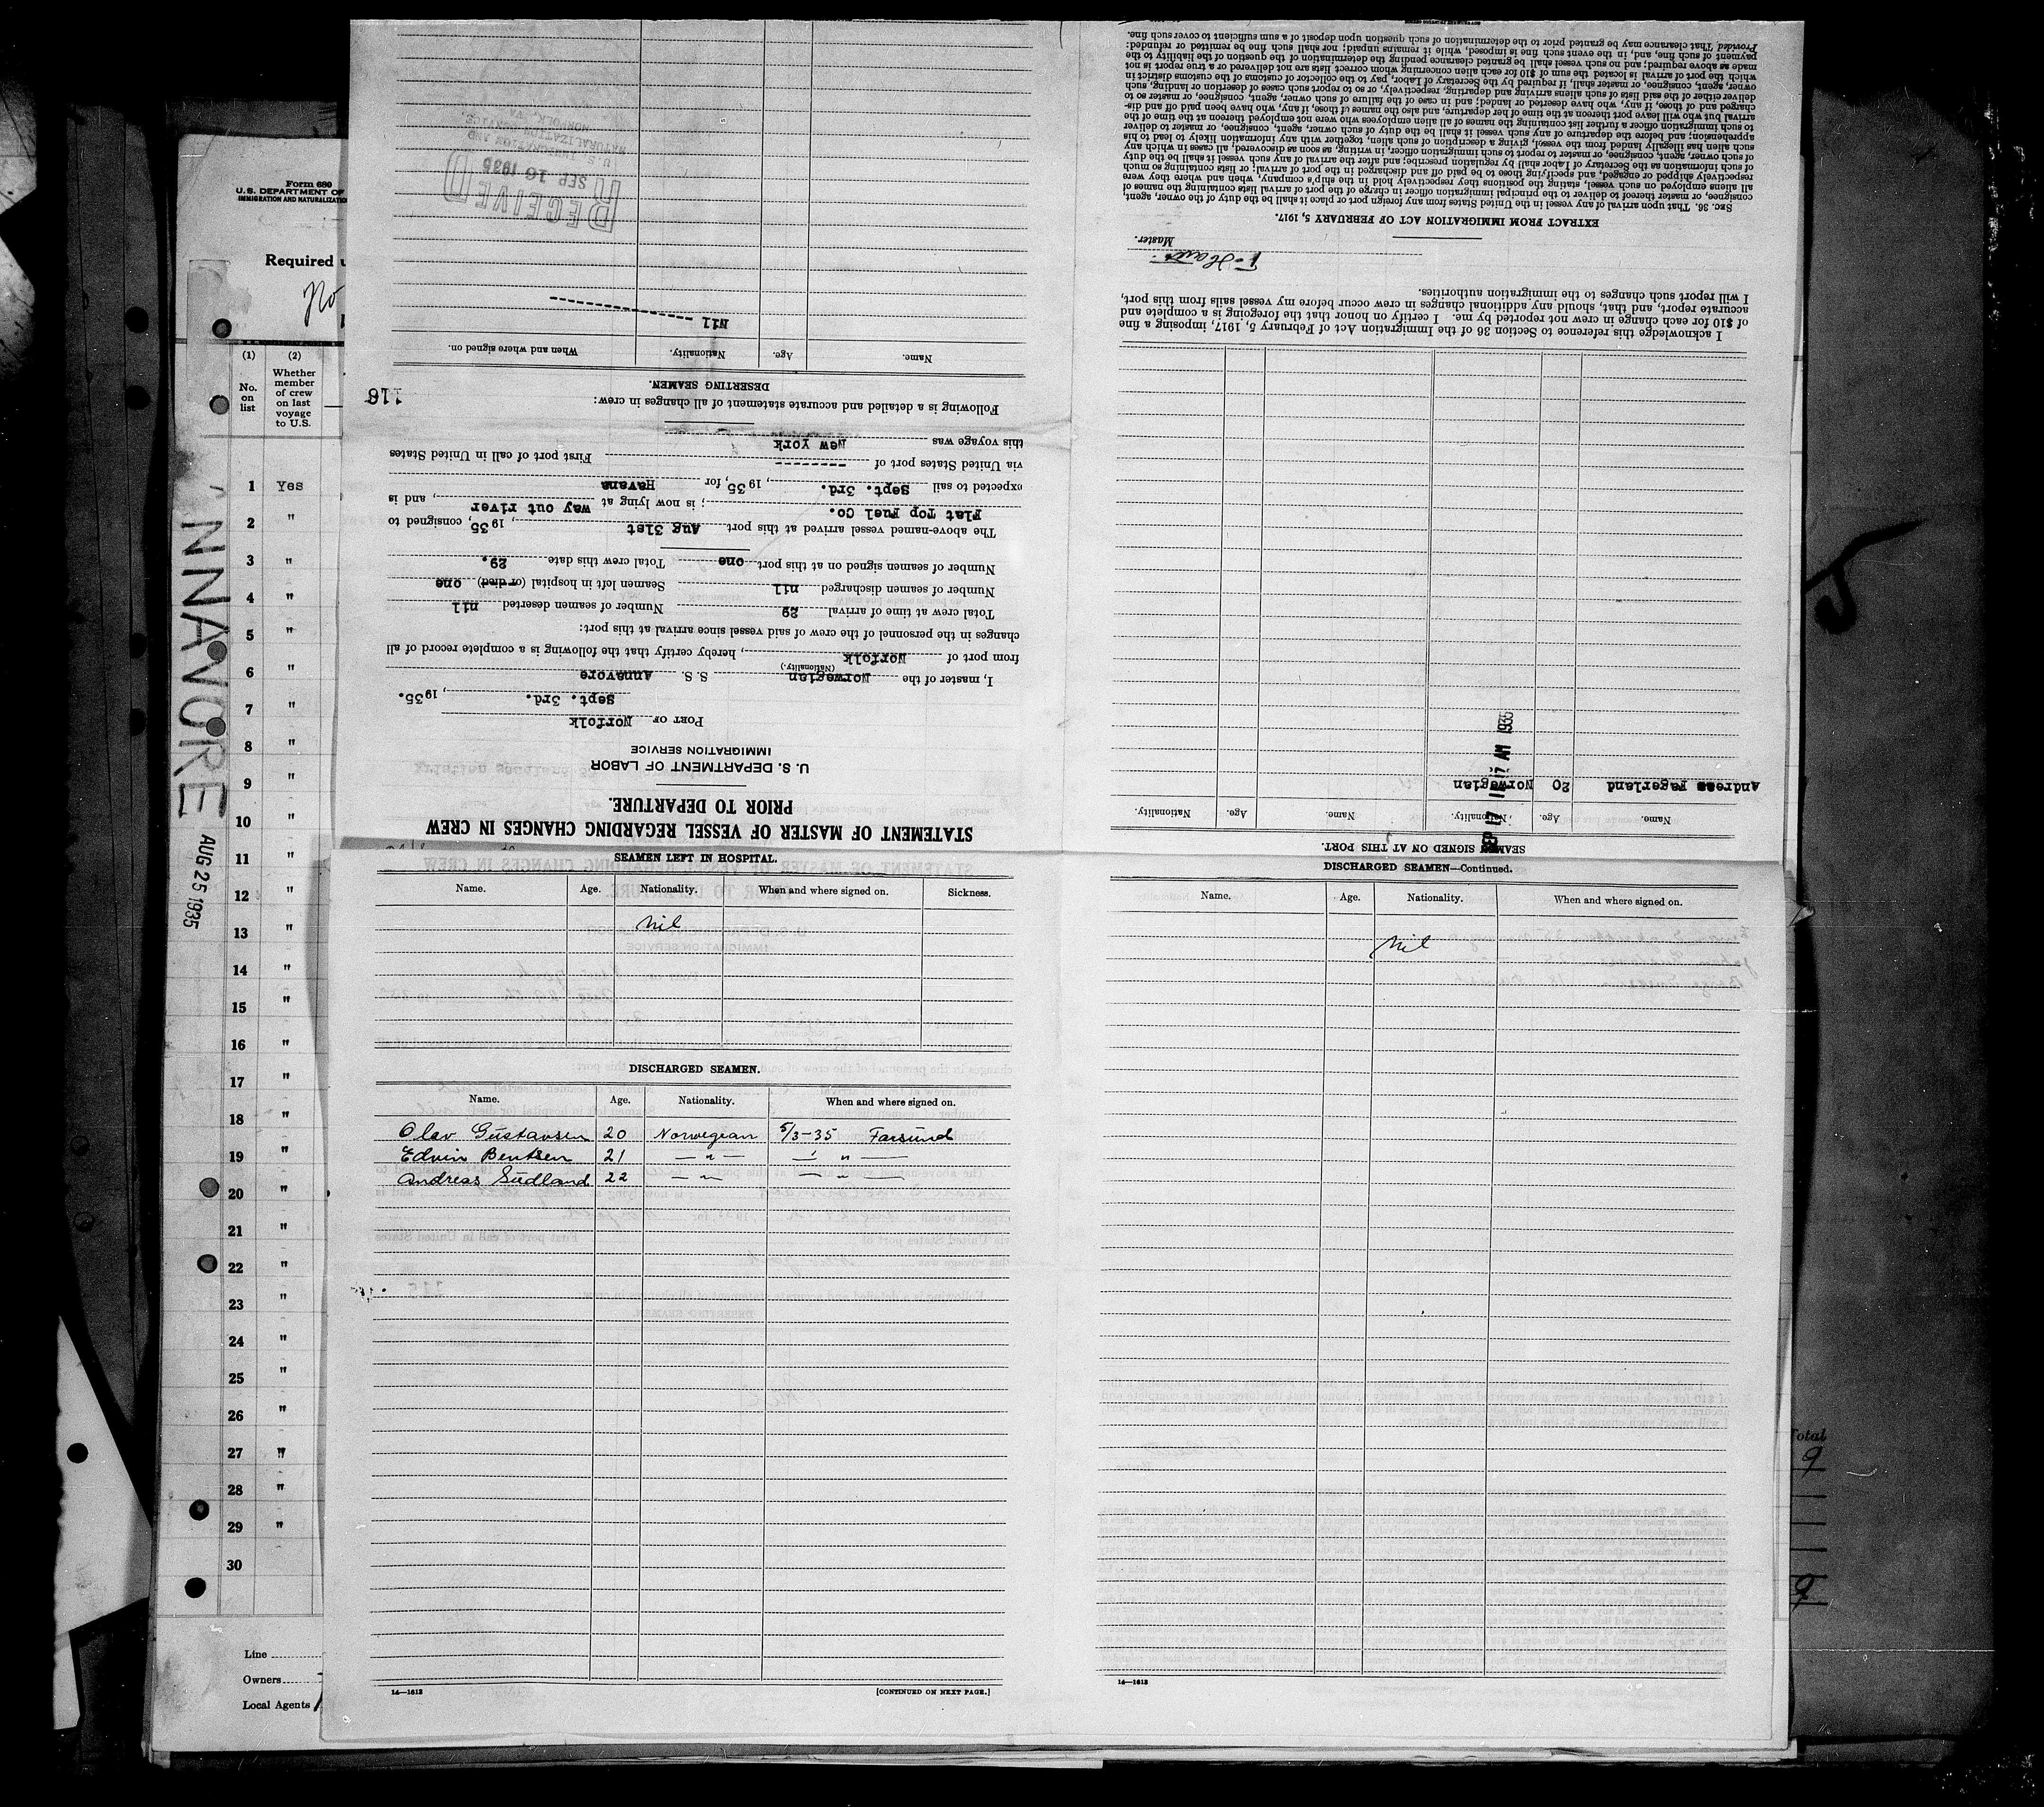 Form 680
U.S. DEPARTMENT OF
IMMIGRATION AND
Required
No
(1) (2)
No. on list
Whether member of crew on last voyage to U.S.
1 Yes
2 "
3 "
4 "
5 "
6 "
7 "
8 "
9 "
10 "
11 "
12 "
13 "
14 "
15 "
16 "
17 "
18 "
19 "
20 "
21 "
22 "
23 "
24 "
25 "
26 "
27 "
28 "
29 "
30
NNAVORE
AUG 25 1935
Line
Owners
Local Agents
STATEMENT OF MASTER OF VESSEL REGARDING CHANGES IN CREW
PRIOR TO DEPARTURE.
U. S. DEPARTMENT OF LABOR
IMMIGRATION SERVICE
PORT OF Norfolk
Sept. 3rd. , 1935.
I, master of the Norwegian S. S. Annavore
(Nationality.)
from port of Norfolk , hereby certify that the following is a complete record of all
changes in the personnel of the crew of said vessel since arrival at this port:
Total crew at time of arrival 29 Number of seamen deserted nil
Number of seamen discharged nil Seamen left in hospital (or died) one
Number of seamen signed on at this port one Total crew this date 29.
The above-named vessel arrived at this port Aug 31st , 1935 , consigned to
Flat Top Fuel Co. ; is now lying at way out river , and is
expected to sail Sept. 3rd. , 1935, for Havana
via United States port of --------- First port of call in United States
this voyage was New York
Following is a detailed and accurate statement of all changes in crew:
116
DESERTING SEAMEN.
Name. Age. Nationality. When and where signed on.
Nil
RECEIVED
SEP 16 1935
U. S. IMMIGRATION AND
NATURALIZATION SERVICE
NORFOLK, VA.
SEAMEN SIGNED ON AT THIS PORT.
Name. Age. Nationality. Name. Age. Nationality.
Andreas Fagerland 20 Norwegian
SEP 17 11 17 AM 1935
I acknowledge this reference to Section 36 of the Immigration Act of February 5, 1917, imposing a fine
of $10 for each change in crew not reported by me. I certify on honor that the foregoing is a complete and
accurate report, and that, should any additional changes in crew occur before my vessel sails from this port,
I will report such changes to the immigration authorities.
Master.
EXTRACT FROM IMMIGRATION ACT OF FEBRUARY 5, 1917.
SEC. 36. That upon arrival of any vessel in the United States from any foreign port or place it shall be the duty of the owner, agent,
consignee, or master thereof to deliver to the principal immigration officer in charge of the port of arrival lists containing the names of
all aliens employed on such vessel, stating the positions they respectively hold in the ship's company, when and where they were
respectively shipped or engaged, and specifying those to be paid off and discharged in the port of arrival; or lists containing so much
of such information as the Secretary of Labor shall by regulation prescribe; and after the arrival of any such vessel it shall be the duty
of such owner, agent, consignee, or master to report to such immigration officer, in writing, as soon as discovered, all cases in which any
such alien has illegally landed from the vessel, giving a description of such alien, together with any information likely to lead to his
apprehension; and before the departure of any such vessel it shall be the duty of such owner, agent, consignee, or master to deliver
to such immigration officer a further list containing the names of all alien employees who were not employed thereon at the time of the
arrival but who will leave port thereon at the time of her departure, and also the names of those, if any, who have been paid off and dis-
charged and of those, if any, who have deserted or landed; and in case of the failure of such owner, agent, consignee, or master so to
deliver either of the said lists of such aliens arriving and departing, respectively, or so to report such cases of desertion or landing, such
owner, agent, consignee, or master shall, if required by the Secretary of Labor, pay to the collector of customs of the customs district in
which the port of arrival is located the sum of $10 for each alien concerning whom correct lists are not delivered or a true report is not
made as above required; and no such vessel shall be granted clearance pending the determination of the question of the liability to the
payment of such fine, and, in the event such fine is imposed, while it remains unpaid; nor shall such fine be remitted or refunded:
Provided That clearance may be granted prior to the determination of such question upon deposit of a sum sufficient to cover such fine.
SEAMEN LEFT IN HOSPITAL.
Name. Age. Nationality. When and where signed on. Sickness.
Nil
DISCHARGED SEAMEN.
Name. Age. Nationality. When and where signed on.
Olav Gustavsen 20 Norwegian 5/3-35 Farsund
Edvin Bentsen 21 — " — — " —
Andreas Sudland 22 — " — — " —
14—1613 [CONTINUED ON NEXT PAGE.]
DISCHARGED SEAMEN—Continued.
Name. Age. Nationality. When and where signed on.
Nil
14—1613
Total
9
9